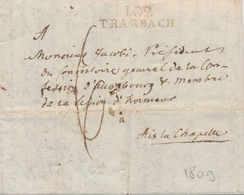 102
TRARBACH
A
Monsieur Jacobi, Président
du Consistoire general de la Con-
fession d'Augsbourg & Membre
de la Legion d'honneur
à
Aix la Chapelle
1809